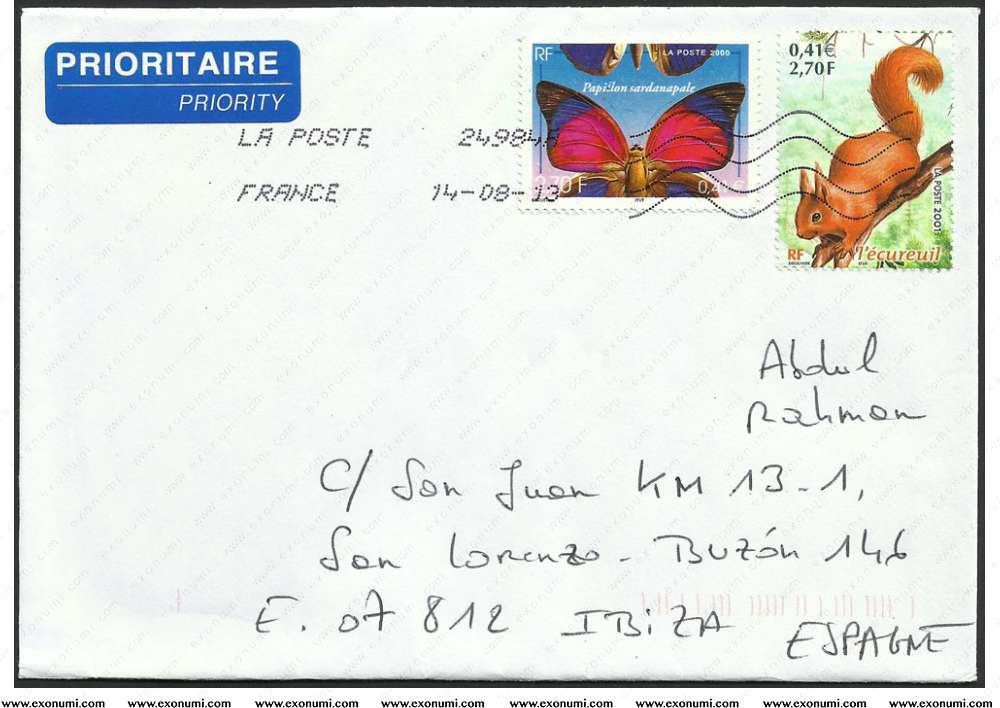 PRIORITAIRE
PRIORITY
LA POSTE 24984A
FRANCE 14-08-13
RF LA POSTE 2000
Papillon sardanapale
2,70 F 0,41 €
0,41€
2,70F
LA POSTE 2001
RF l'écureuil
Abdul
Rahman
C/ San Juan KM 13-1,
San Lorenzo - Buzón 146
E. 07 812 IBIZA
ESPAGNE
www.exonumi.com www.exonumi.com www.exonumi.com www.exonumi.com www.exonumi.com www.exonumi.com www.exonumi.com www.exonumi.com